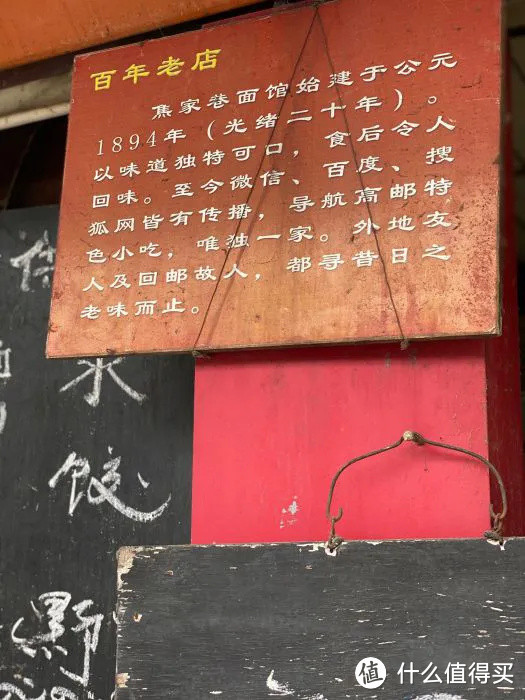 百年老店
焦家巷面馆始建于公元
1894年（光绪二十年）。
以味道独特可口，食后令人
回味。至今微信、百度、搜
狐网皆有传播，导航高邮特
色小吃，唯独一家。外地友
人及回邮故人，都寻昔日之
老味而止。
水
饺
值 什么值得买